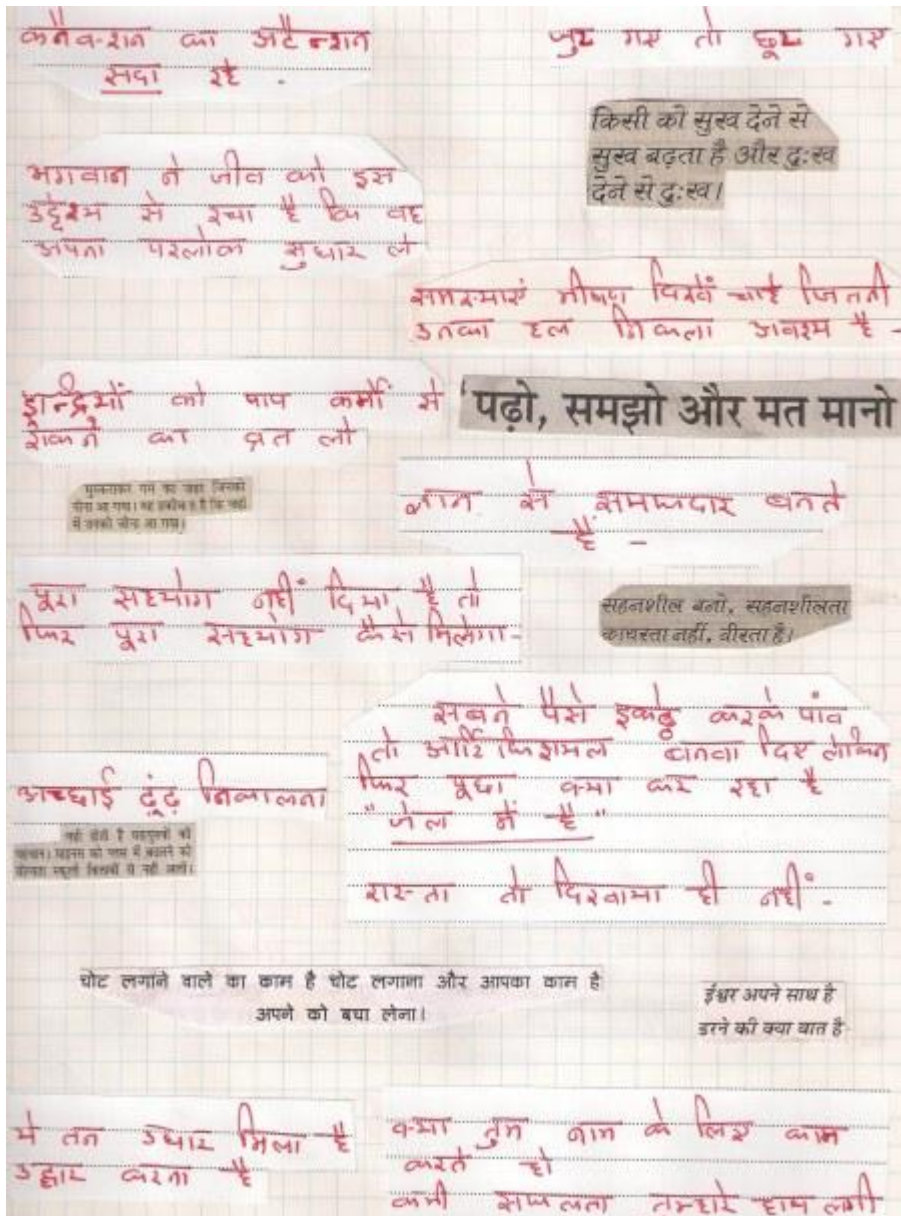 कनैक्शन का अटैन्शन
सदा रहे -
जुट गए तो छूट गए
किसी को सुख देने से
सुख बढ़ता है और दु:ख
देने से दु:ख।
भगवान ने जीव को इस
उद्देश्य से रचा है कि वह
अपना परलोक सुधार ले
समस्याएं भीषण दिखें चाहे जितनी
उनका हल निकला अवश्य है -
इन्द्रियों को पाप कर्मों से
रोकने का व्रत लो
'पढ़ो, समझो और मत मानो
मुस्कराकर गम का जहर जिनको
पीना आ गया। यह हकीकत है कि जहां
में उनको जीना आ गया।
ज्ञान से समझदार बनते
हैं -
पूरा सहयोग नहीं दिया है तो
फिर पूरा सहयोग कैसे मिलेगा -
सहनशील बनो, सहनशीलता
कायरता नहीं, वीरता है।
सबने पैसे इकट्ठे करके पांव
तो आर्टिफिशयल बनवा दिए लेकिन
फिर पूछा क्या कर रहा है
"जेल में है"
रास्ता तो दिखाया ही नहीं -
अच्छाई ढूंढ़ निकालना
यही होती है महापुरुषों की
पहचान। माइनस को प्लस में बदलने की
योग्यता स्कूली किताबों से नहीं आती।
चोट लगाने वाले का काम है चोट लगाना और आपका काम है
अपने को बचा लेना।
ईश्वर अपने साथ है
डरने की क्या बात है
ये तन उधार मिला है
उद्धार करना है
क्या तुम नाम के लिए काम
करते हो
कभी सफलता तुम्हारे हाथ लगी